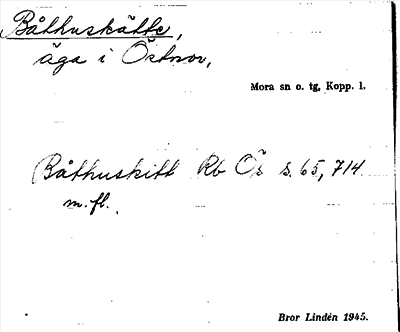 Båthuskätte,
äga i Östnor,
Mora sn o. tg, Kopp. l.
Båthuskitt Rb Ös s. 65, 714
m. fl.
Bror Lindén 1945.